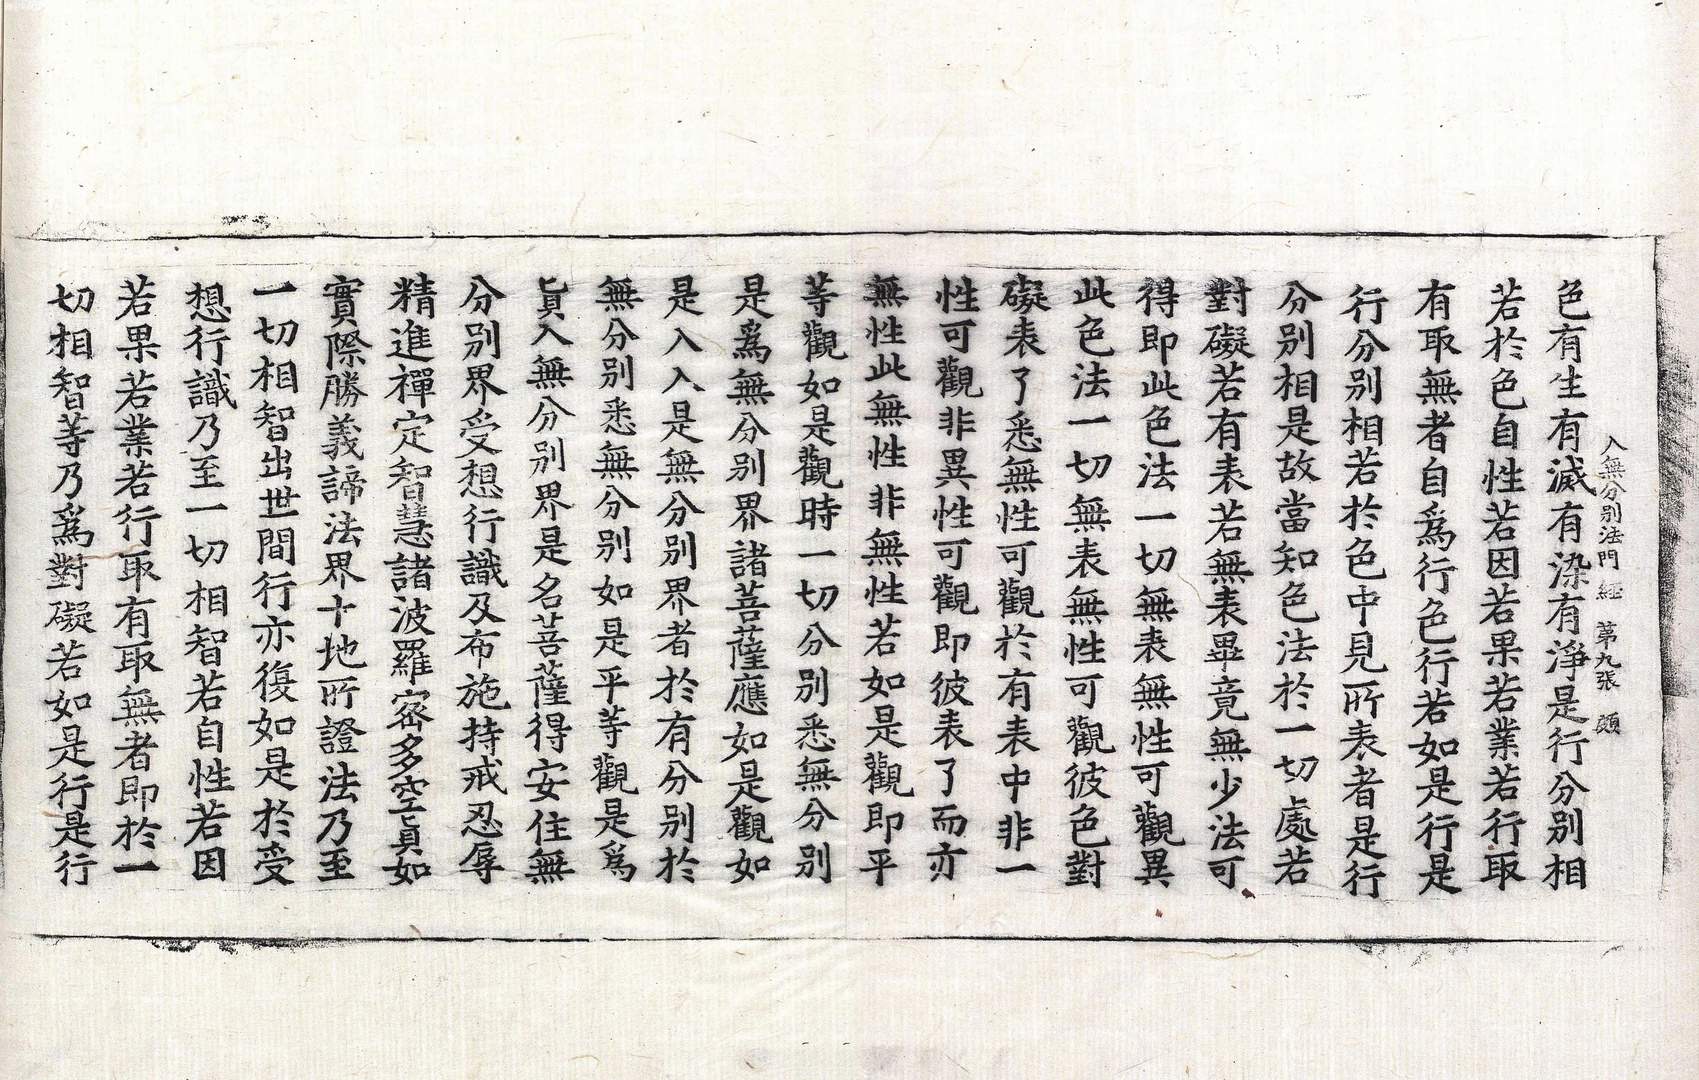 入無分別法門經 第九張 頗
色有生有滅有染有淨是行分別相
若於色自性若因若果若業若行取
有取無者自爲行色行若如是行是
行分別相若於色中見所表者是行
分別相是故當知色法於一切處若
對礙若有表若無表畢竟無少法可
得即此色法一切無表無性可觀異
此色法一切無表無性可觀彼色對
礙表了悉無性可觀於有表中非一
性可觀非異性可觀即彼表了而亦
無性此無性非無性若如是觀即平
等觀如是觀時一切分別悉無分別
是爲無分別界諸菩薩應如是觀如
是入入是無分別界者於有分別於
無分別悉無分別如是平等觀是爲
眞入無分別界是名菩薩得安住無
分別界受想行識及布施持戒忍辱
精進禪定智慧諸波羅蜜多空眞如
實際勝義諦法界十地所證法乃至
一切相智出世間行亦復如是於受
想行識乃至一切相智若自性若因
若果若業若行取有取無者即於一
切相智等乃爲對礙若如是行是行